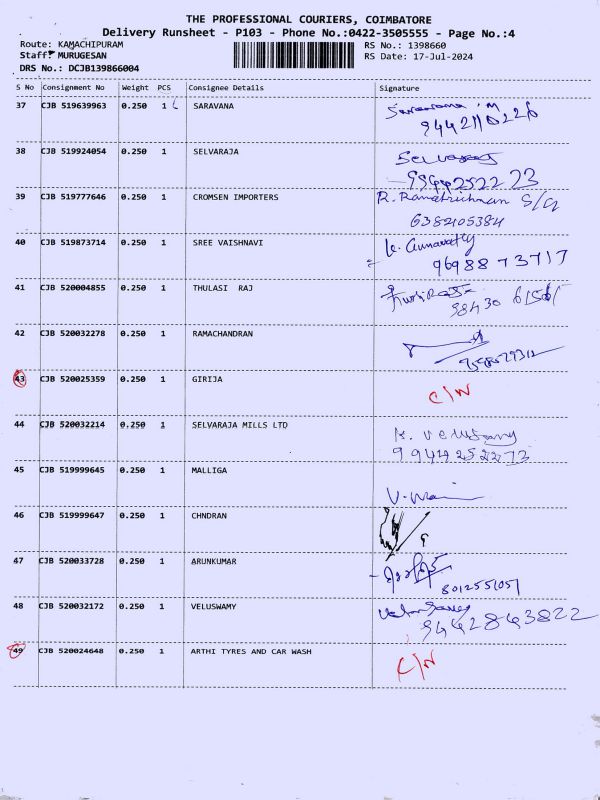 THE PROFESSIONAL COURIERS, COIMBATORE
Delivery Runsheet - P103 - Phone No.:0422-3505555 - Page No.:4
Route: KAMACHIPURAM RS No.: 1398660
Staff: MURUGESAN RS Date: 17-Jul-2024
DRS No.: DCJB139866004
S No Consignment No Weight PCS Consignee Details Signature
37 CJB 519639963 0.250 1 SARAVANA
38 CJB 519924054 0.250 1 SELVARAJA
9944252273
39 CJB 519777646 0.250 1 CROMSEN IMPORTERS R. Ramakrishnan S/G
6382105384
40 CJB 519873714 0.250 1 SREE VAISHNAVI
9698873717
41 CJB 520004855 0.250 1 THULASI RAJ
42 CJB 520032278 0.250 1 RAMACHANDRAN
43 CJB 520025359 0.250 1 GIRIJA C/N
44 CJB 520032214 0.250 1 SELVARAJA MILLS LTD
9944252273
45 CJB 519999645 0.250 1 MALLIGA
46 CJB 519999647 0.250 1 CHNDRAN
47 CJB 520033728 0.250 1 ARUNKUMAR
8012551051
48 CJB 520032172 0.250 1 VELUSWAMY
9442843822
49 CJB 520024648 0.250 1 ARTHI TYRES AND CAR WASH C/N